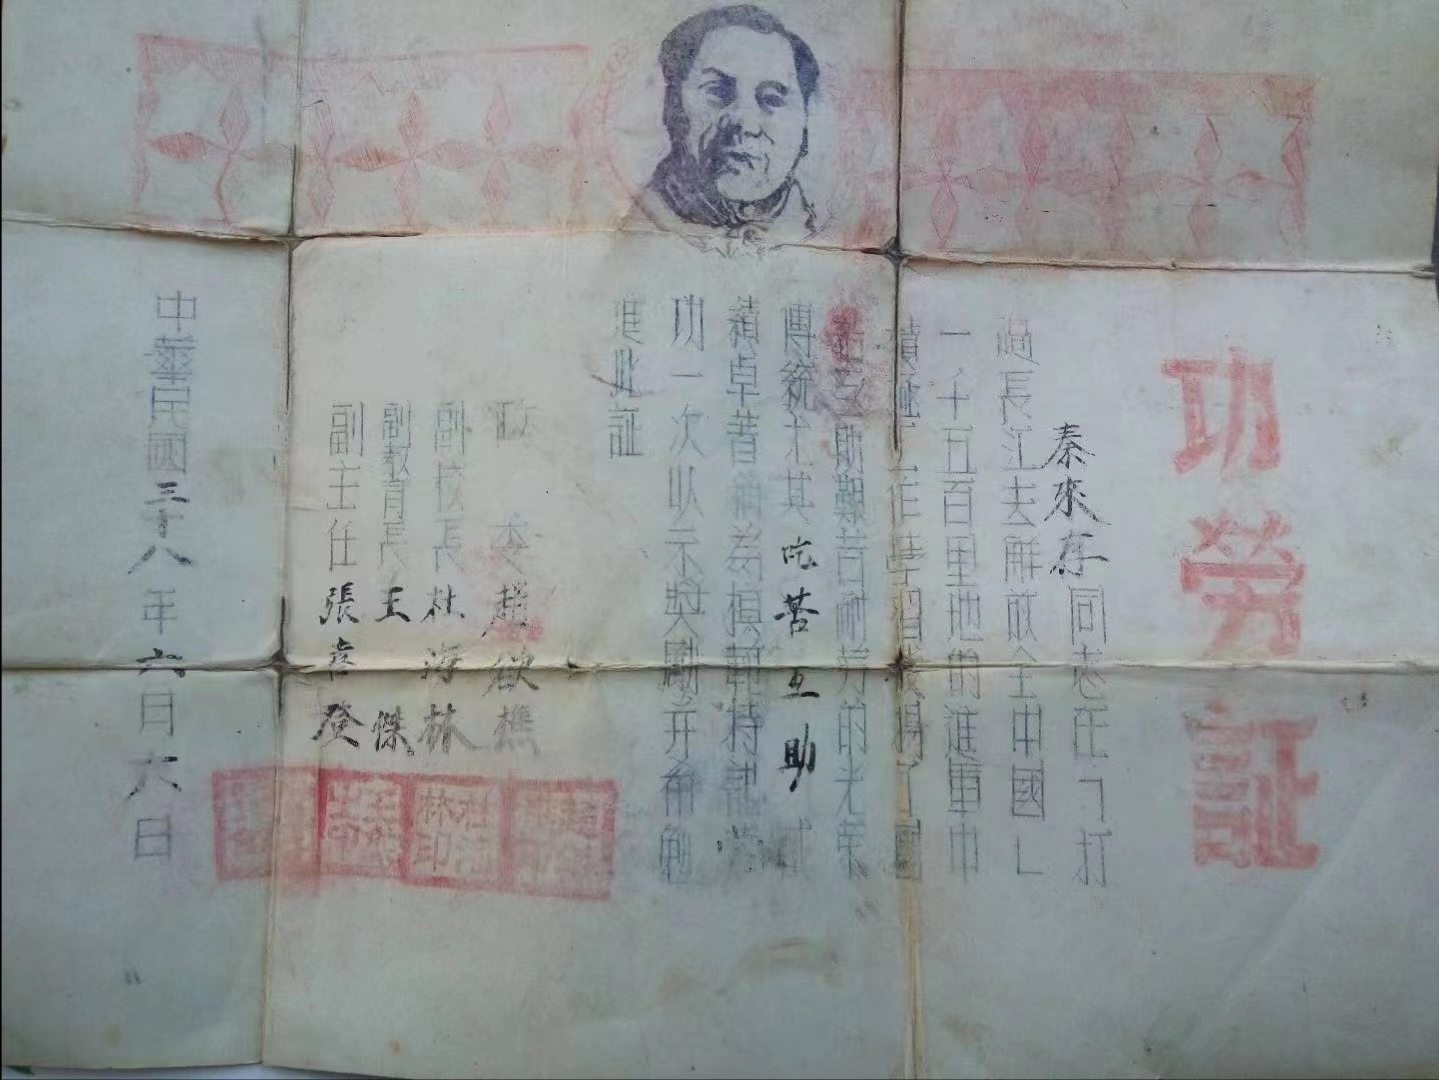 功勞証
秦來存同志在「打
過長江去解放全中國」
一千五百里地的進軍中
積極工作學習獲得了團
結互助艱苦耐勞的光榮
傳統尤其吃苦互助成
績卓著稱為模範特記
功一次以示獎勵并希勉
進此証
政委趙欲樵
副校長杜海林
副教育長王傑
副主任張喜登
杜海林印
中華民國三十八年六月六日